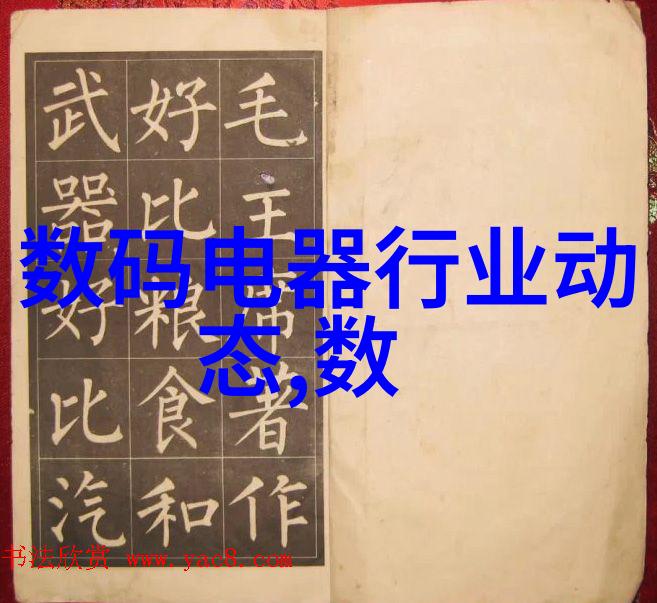 毛主席著作
好比粮食和
武器好比汽
数码电器行业动
态,数
书法欣赏 www.yac8.com